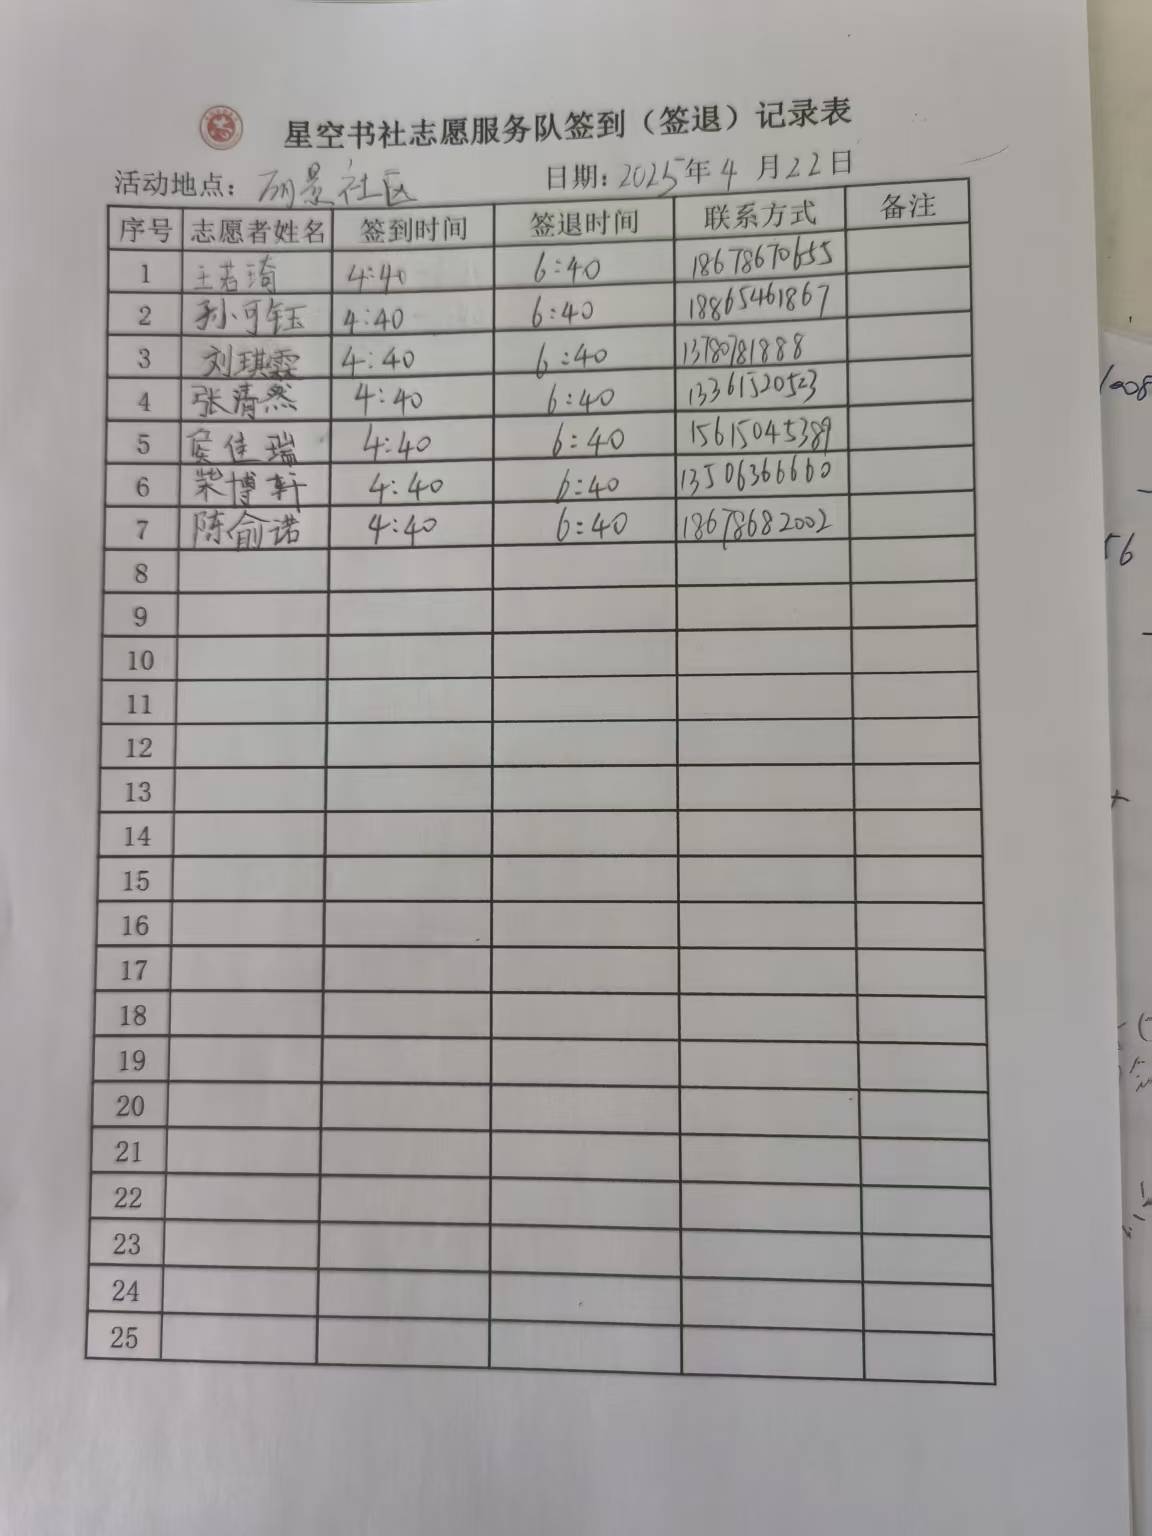 星空书社志愿服务队签到（签退）记录表
活动地点：丽景社区 日期：2025年4月22日
序号 志愿者姓名 签到时间 签退时间 联系方式 备注
1 王若琦 4:40 6:40 18678670655
2 孙可钰 4:40 6:40 18865461867
3 刘琪霖 4:40 6:40 13780781888
4 张清然 4:40 6:40 13361520523
5 侯佳瑞 4:40 6:40 15615045389
6 荣博轩 4:40 6:40 13506366660
7 陈俞诺 4:40 6:40 18678682002
8
9
10
11
12
13
14
15
16
17
18
19
20
21
22
23
24
25